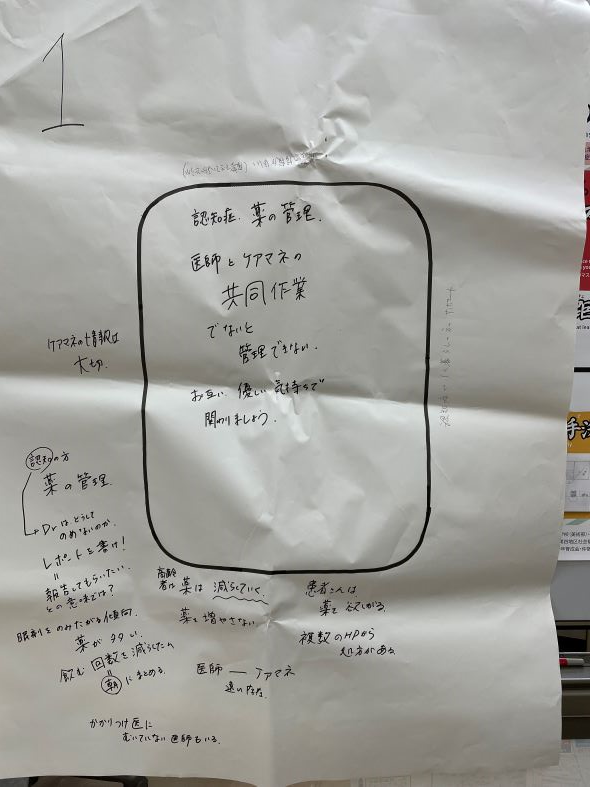 1
認知症、薬の管理.
医師とケアマネの
共同作業
でないと
管理できない.
お互い、優しい気持ちで
関わりましょう.
ケアマネの情報は
大切.
認知の方
薬の管理.
Drはどうして
のめないのか.
レポートを書け!
=
報告してもらいたい.
との意味では?
眠剤をのみたがる傾向.
薬が多い.
飲む回数を減らしてたら
=
朝にまとめる.
かかりつけ医に
むいていない医師もいる.
高齢
者は薬は減らしていく.
薬を増やさない.
医師 — ケアマネ
遠い存在.
患者さんは
薬を欲しがる.
複数のHPから
処方がある.
手法